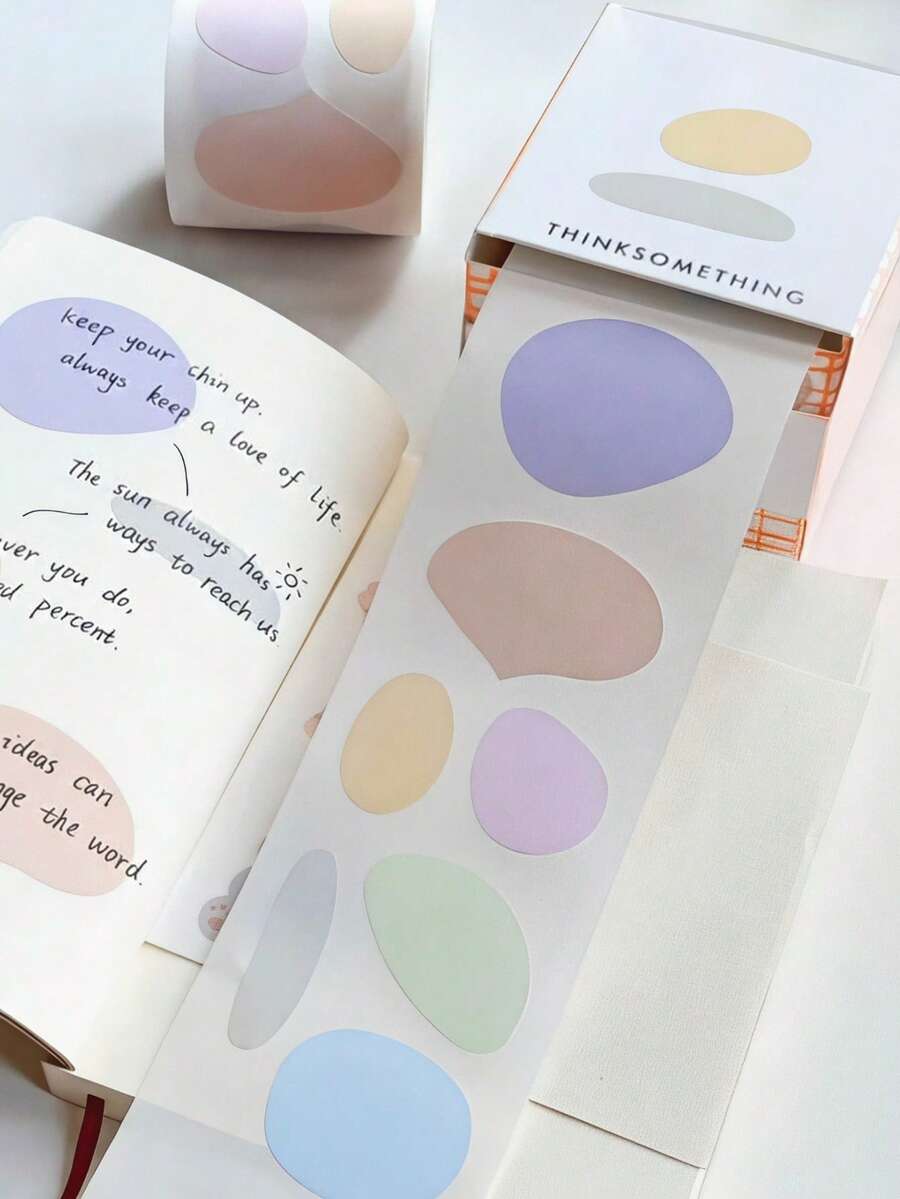 THINKSOMETHING
keep your chin up.
always keep a love of life.
The sun always has
ways to reach us.
you do,
percent.
ideas can
the word.